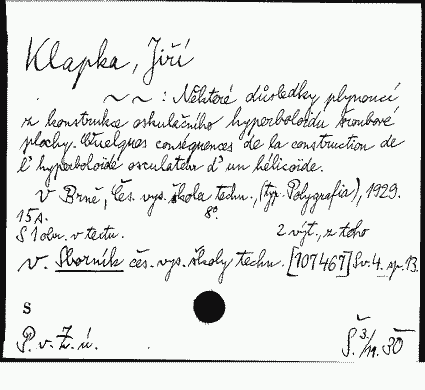 Klapka, Jiří
~ ~ : Některé důsledky plynoucí
z konstrukce oskulačního hyperboloidu šroubové
plochy. Quelques conséquences de la construction de
l'hyperboloide osculateur d'un hélicoide.
V Brně, Čes. vys. škola techn., (typ. Polygrafia), 1929.
15 s. 8°.
S 1 obr. v textu. 2 výt., z toho
v. Sborník čes. vys. školy techn. [107467] Sv. 4. sp. 13.
S
P. v. Z. ú. Š. 3/11. 30